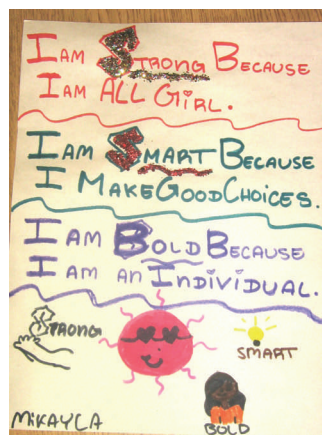 I AM STRONG BECAUSE
I AM ALL GiRL.
I AM SMART BECAUSE
I MAKE GOOD CHOICES.
I AM BOLD BECAUSE
I AM an INDiViDUAL.
STRONG
SMART
MiKAYLA
BOLD